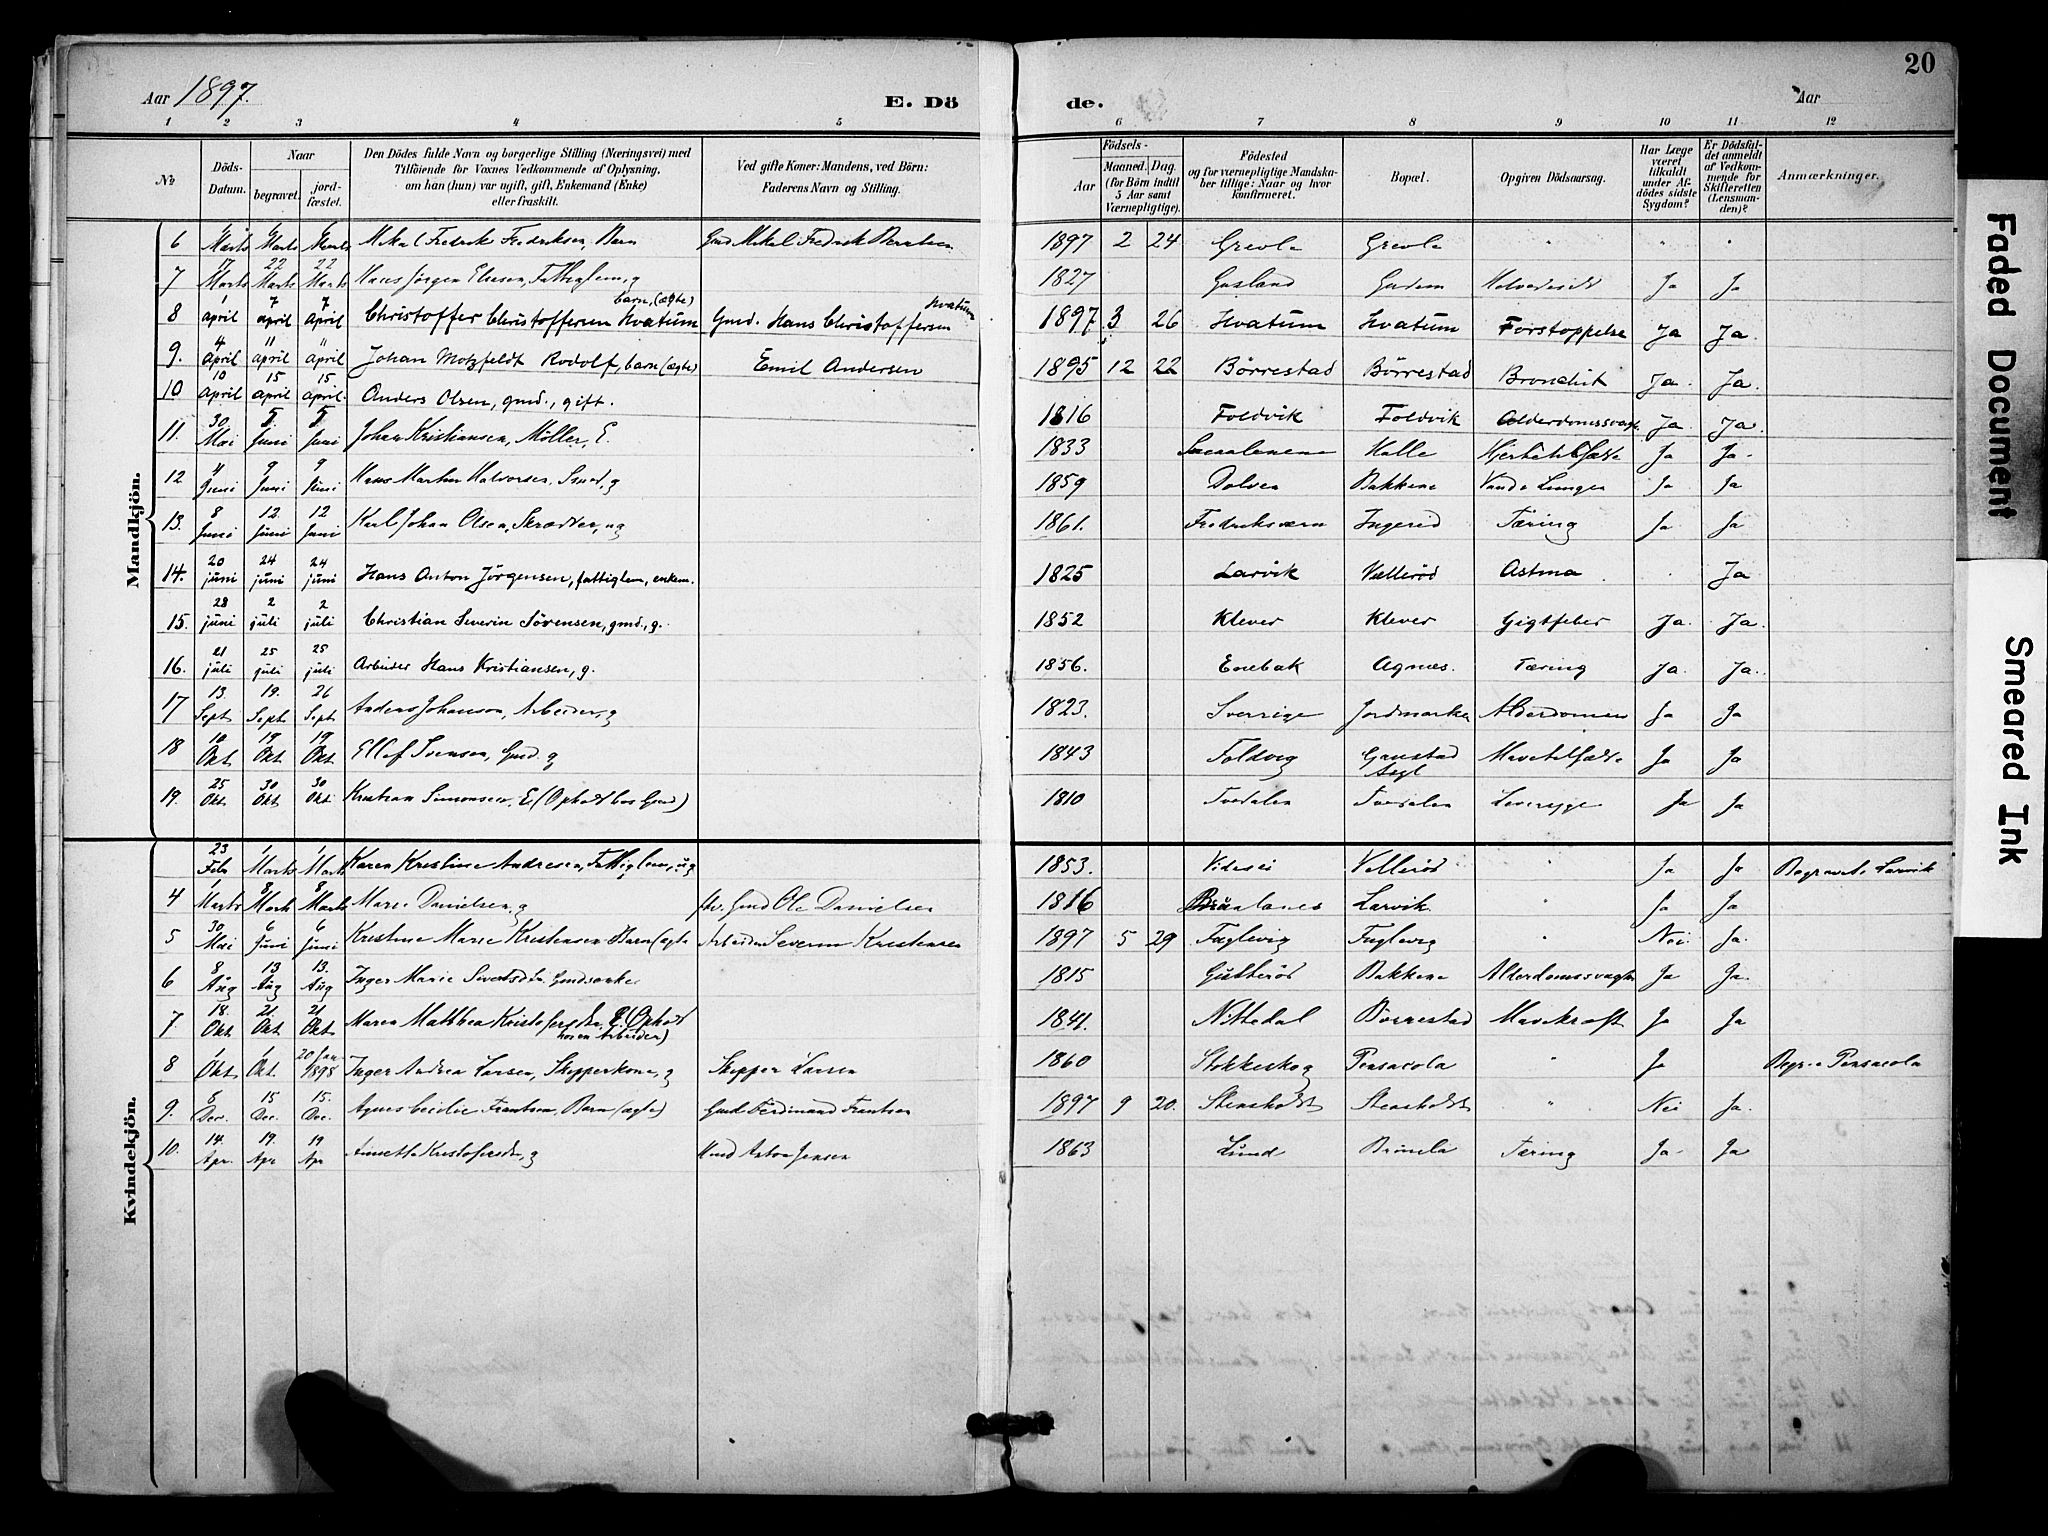 Aar 1897.
E. Dö
de.
Aar
20
1 2 3 4 5 6 7 8 9 10 11 12
No
Döds-Datum.
Naar
begravet.
jord-fæstet.
Den Dödes fulde Navn og borgerlige Stilling (Næringsvei) med
Tilföiende for Voxnes Vedkommende af Oplysning,
om han (hun) var ugift, gift, Enkemand (Enke)
eller fraskilt.
Ved gifte Koner: Mandens, ved Börn:
Faderens Navn og Stilling.
Födsels-
Aar
Maaned. Dag.
(for Börn indtil
5 Aar samt
Værnepligtige).
Födested
og for værnepligtige Mandska-
ber tillige: Naar og hvor
konfirmeret.
Bopæl.
Opgiven Dödsaarsag.
Har Læge
været
tilkaldt
under Af-
dödes sidste
Sygdom?
Er Dödsfal-
det anmeldt
af Vedkom-
mende for
Skifteretten
(Lensman-
den)?
Anmærkninger.
Mandkjön.
6 Marts Marts Marts Fredrik Fredriksen, Barn Gmd Mikal Fredrik 1897 2 24 Grevle Grevle " " "
7 17 Marts 22 Marts 22 Marts Hans Jørgen g 1827 Ja Ja
8 1 april 7 april 7 april Christoffer Christoffersen Kvatum barn, (ægte) Gmd. Hans Christoffersen Kvatum 1897 3 26 Kvatum Kvatum Forstoppelse Ja Ja.
9. 4 april 11 april 11 april Johan Motzfeldt Rodolf, barn (ægte) Emil Andersen 1895 12 22 Börrestad Börrestad Ja. Ja.
10 10 april 15 april 15 april. Anders Olsen, gmd., gift. 1816 Foldvik Foldvik Alderdomssvagh. Ja. Ja.
11. 30 Mai 5 Juni 5 Juni Johan Kristiansen, Möller, E. 1833 Halle Ja Ja.
12 4 Juni 9 Juni 9 Juni Hans Martin Halvorsen, Smed, g 1859 Dolven Bakkene Ja Ja
13. 8 Juni 12. Juni 12 Juni Karl Johan Olsen, ug 1861. Fredriksværn Tæring Ja Ja
14. 20 juni 24 juni 24 juni Hans Anton Jörgensen, fattiglem, enkem. 1825 Larvik Vælleröd Astma . Ja
15. 28 juni 2 juli 2 juli Christian Severin Sörensen, gmd., g. 1852 Klever Klever Gigtfeber Ja. Ja.
16. 21 juli 25 juli 25 juli Arbeider Hans Kristiansen, g. 1856. Enebak Agnæs. Tæring Ja. Ja.
17 13. Sept 19. Sept 26 Sept Anders Johanson, Arbeider, g 1823. Sverrige Ja Ja
18 Okt 19 Okt 19 Okt Ellef Svensen, Gmd. g 1843 Foldvig Ja Ja
19. 25 Okt 30 Okt 30 Okt Kristian Simonsen, E 1810 Tvedalen Tvedalen Ja Ja
Kvindekjön.
23 Feb 1 Marts 1 Marts Karen Kristine Andresen, Fattiglem, ug 1853. Vellerød " Ja Ja Larvik
4 1 Marts 8 Marts 8 Marts Maren Danielsen, g Gmd Ole Danielsen 1816 Larvik. " Ja Ja
5 30 Mai 6 Juni 6 Juni Kristine Marie Kristensen Barn (ægte Arbeider Severin Kristensen 1897 5 29 Fuglevig Fuglevig " Nei Ja.
6 8 Aug 13 Aug 13. Aug Inger Marie 1815 Bakkene Alderdomssvagh Ja Ja.
7 18. Okt 21. Okt 21 Okt Maren Mathea 1841. Nittedal Börrestad Mavekræft Ja Ja
8 1 Okt 1 Okt. 20 Jan 1898 Inger Andrea Larsen, Skipperkone, g Skipper Larsen 1860 Stokkeskog Pensacola " Ja Pensacola
9. 8 Dec. 15 Dec. 15. Dec. Agnes Cecilie Frantsen, Barn (ægte) Gmd Ferdinand Frantsen 1897 9 20. Stensholdt Stensholdt " Nei Ja.
10. 14. Apr. 19. Apr 19 Apr g Anton Jensen 1863 Lund Tæring Ja. Ja
Faded Document
Smeared Ink